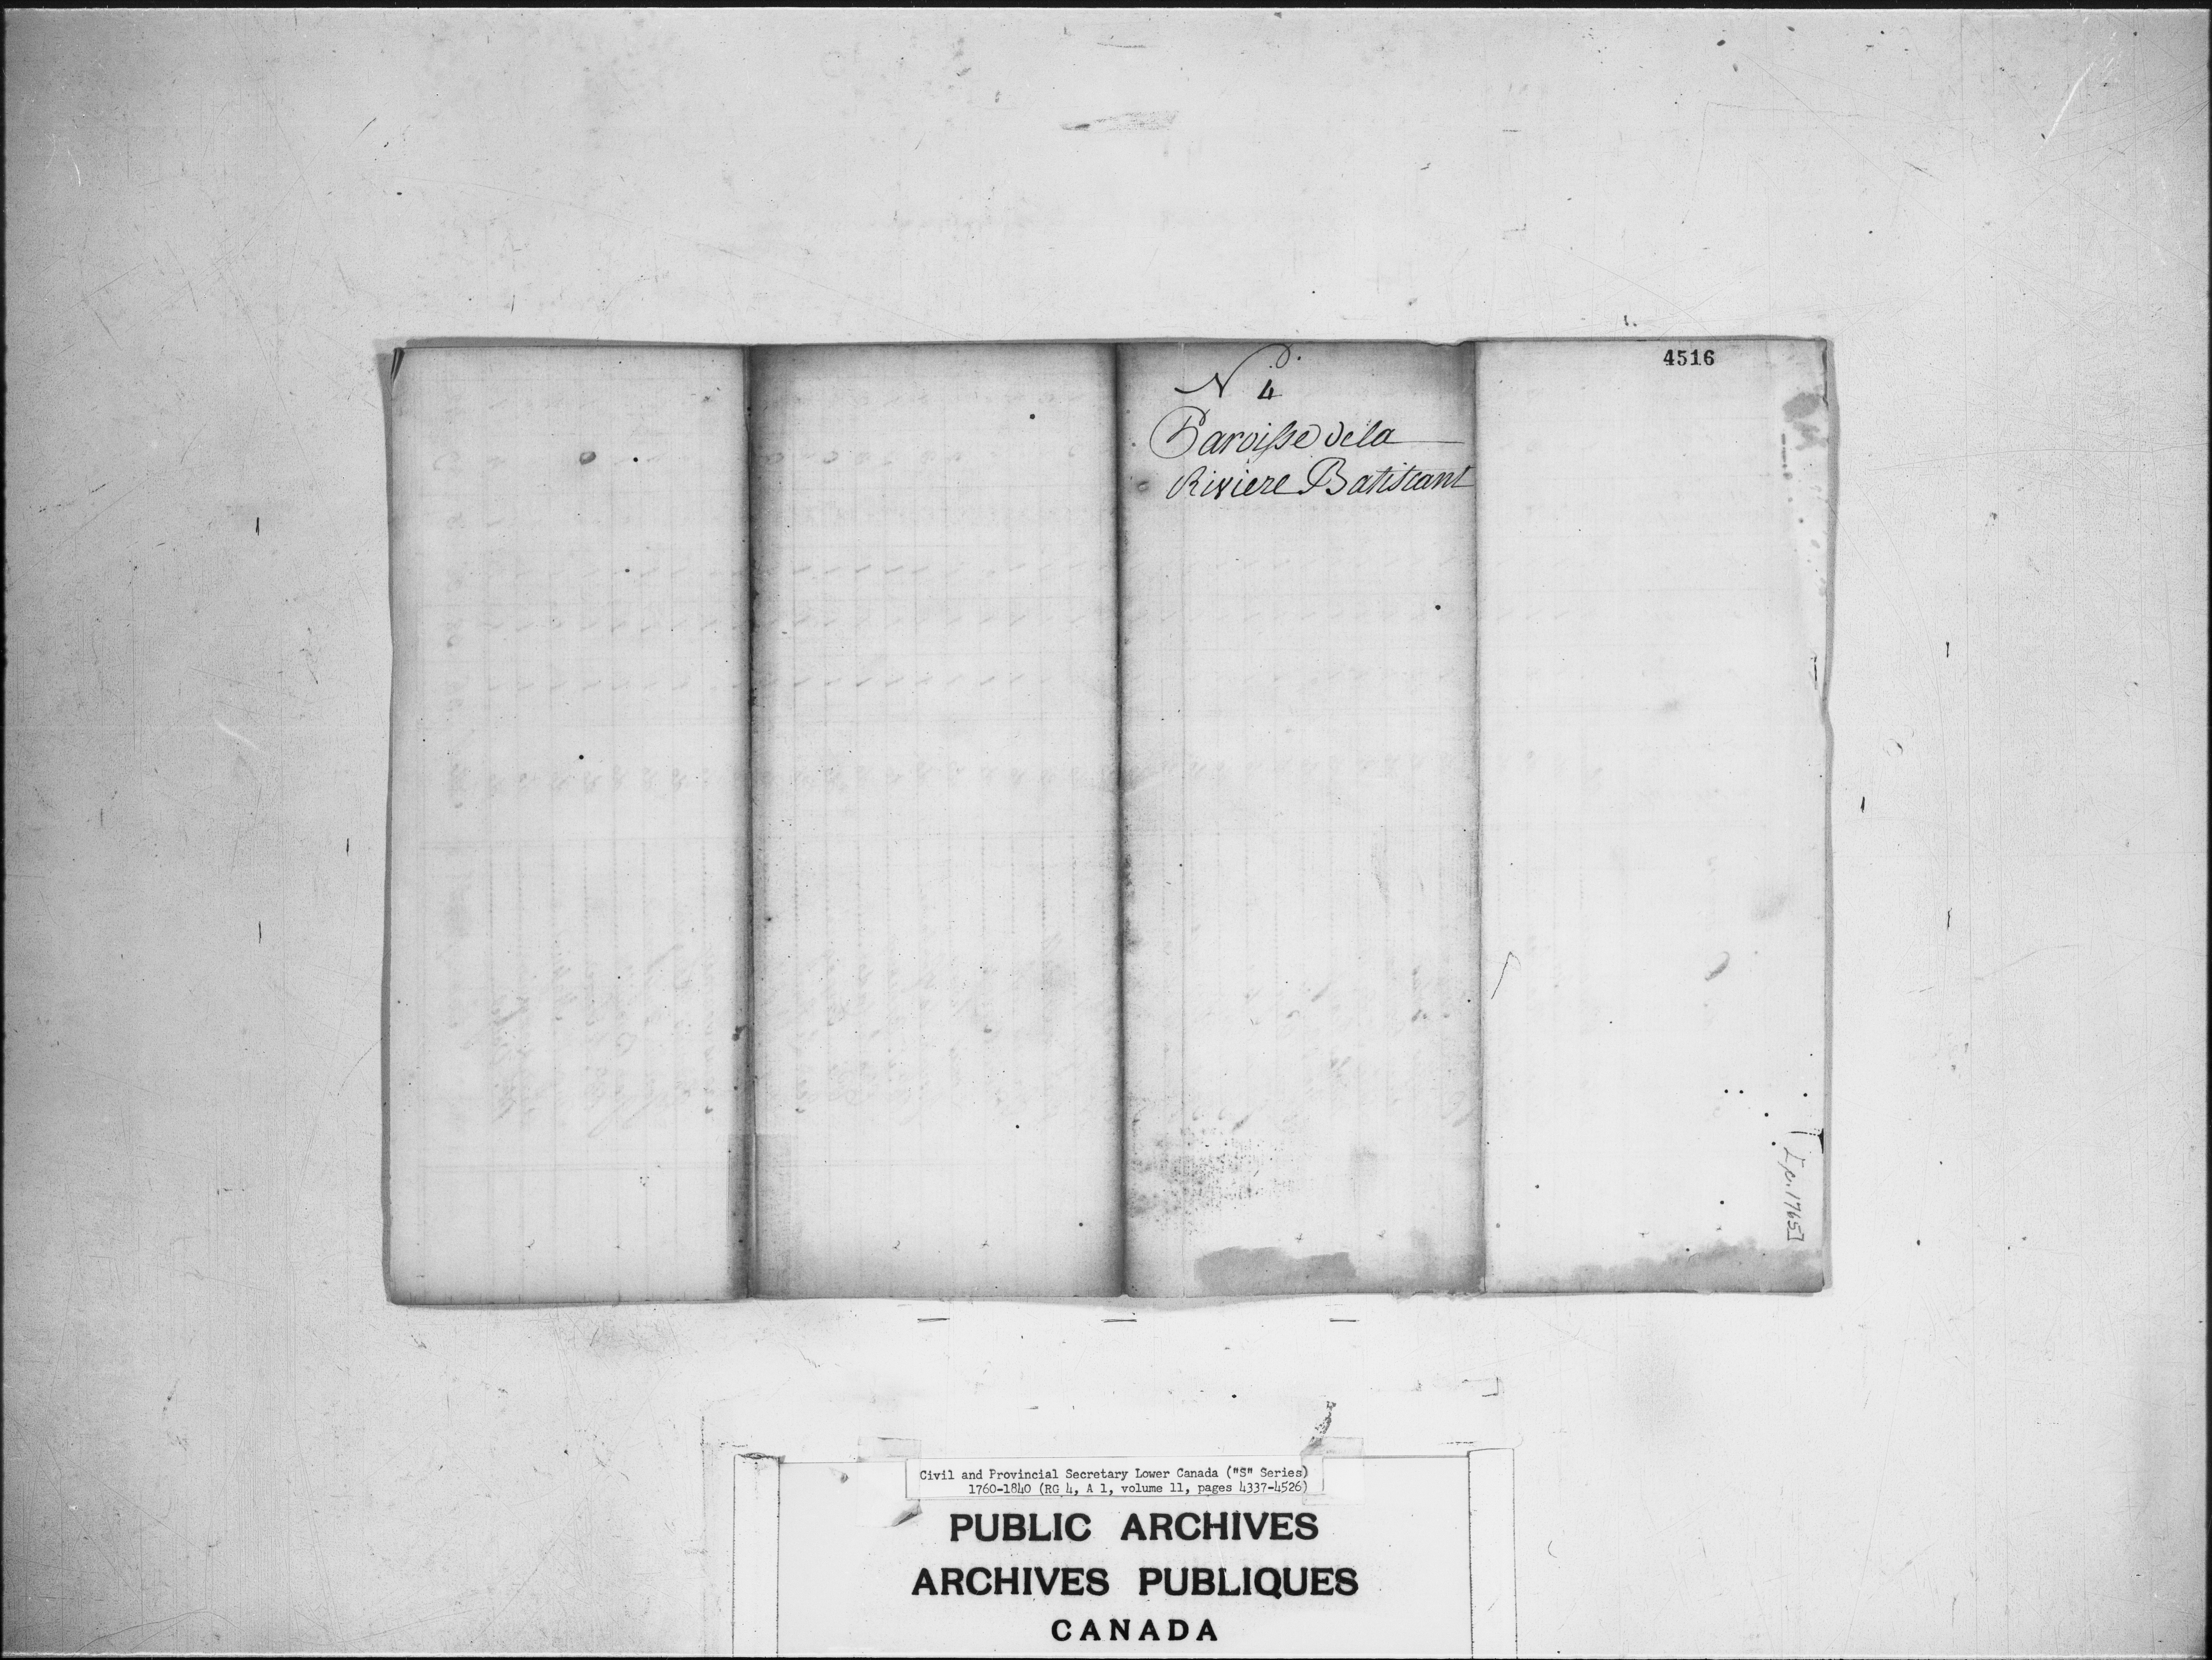 4516
No. 4
Paroisse dela
Riviere Batiscant
[p. 1765]
Civil and Provincial Secretary Lower Canada ("S" Series)
1760-1840 (RG 4, A 1, volume 11, pages 4337-4526)
PUBLIC ARCHIVES
ARCHIVES PUBLIQUES
CANADA